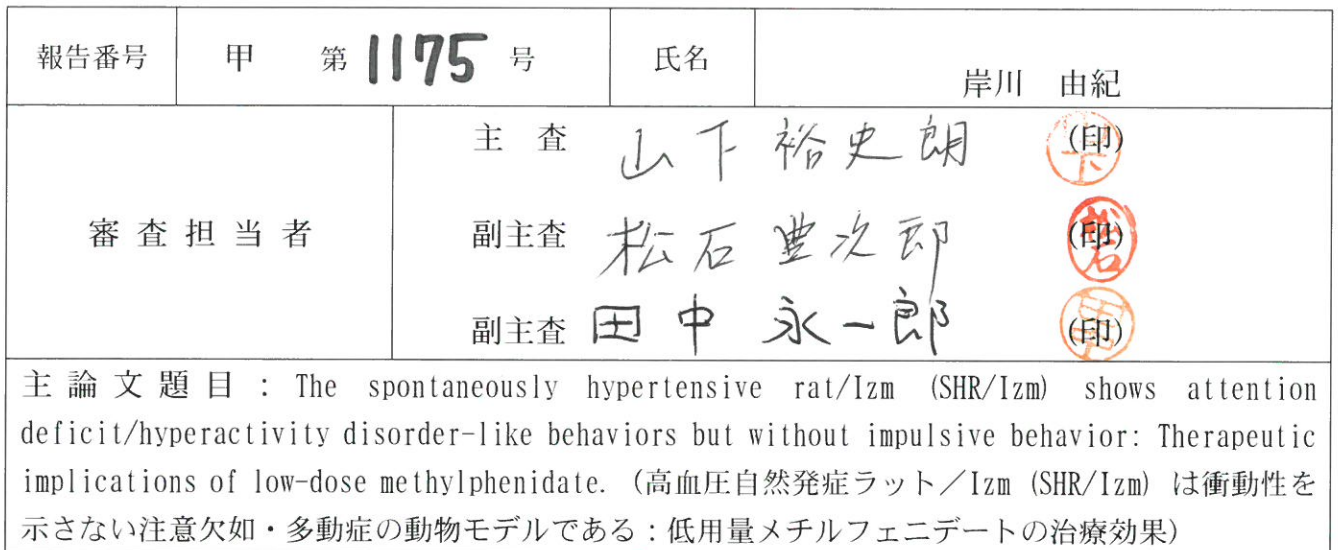 報告番号 甲 第1175号 氏名 岸川 由紀
主 査 山下 裕史朗 (印)
審 査 担 当 者 副主査 松石 豊次郎 (印)
副主査 田中 永一郎 (印)
主 論 文 題 目 : The spontaneously hypertensive rat/Izm (SHR/Izm) shows attention
deficit/hyperactivity disorder-like behaviors but without impulsive behavior: Therapeutic
implications of low-dose methylphenidate. (高血圧自然発症ラット/Izm (SHR/Izm) は衝動性を
示さない注意欠如・多動症の動物モデルである:低用量メチルフェニデートの治療効果)